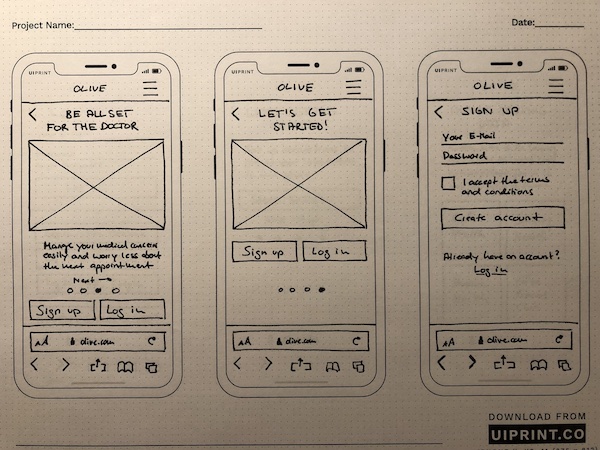 Project Name:
Date:
UIPRINT
OLIVE
BE ALL SET
FOR THE DOCTOR
your medical concerns
easily and worry less about
the next appointment
Next →
Sign up
Log in
AA
olive.com
UIPRINT
OLIVE
LET'S GET
STARTED!
Sign up
Log in
AA
olive.com
UIPRINT
OLIVE
SIGN UP
Your E-Mail
Password
I accept the terms
and conditions
Create account
Already have an account?
Log in
AA
olive.com
DOWNLOAD FROM
UIPRINT.CO